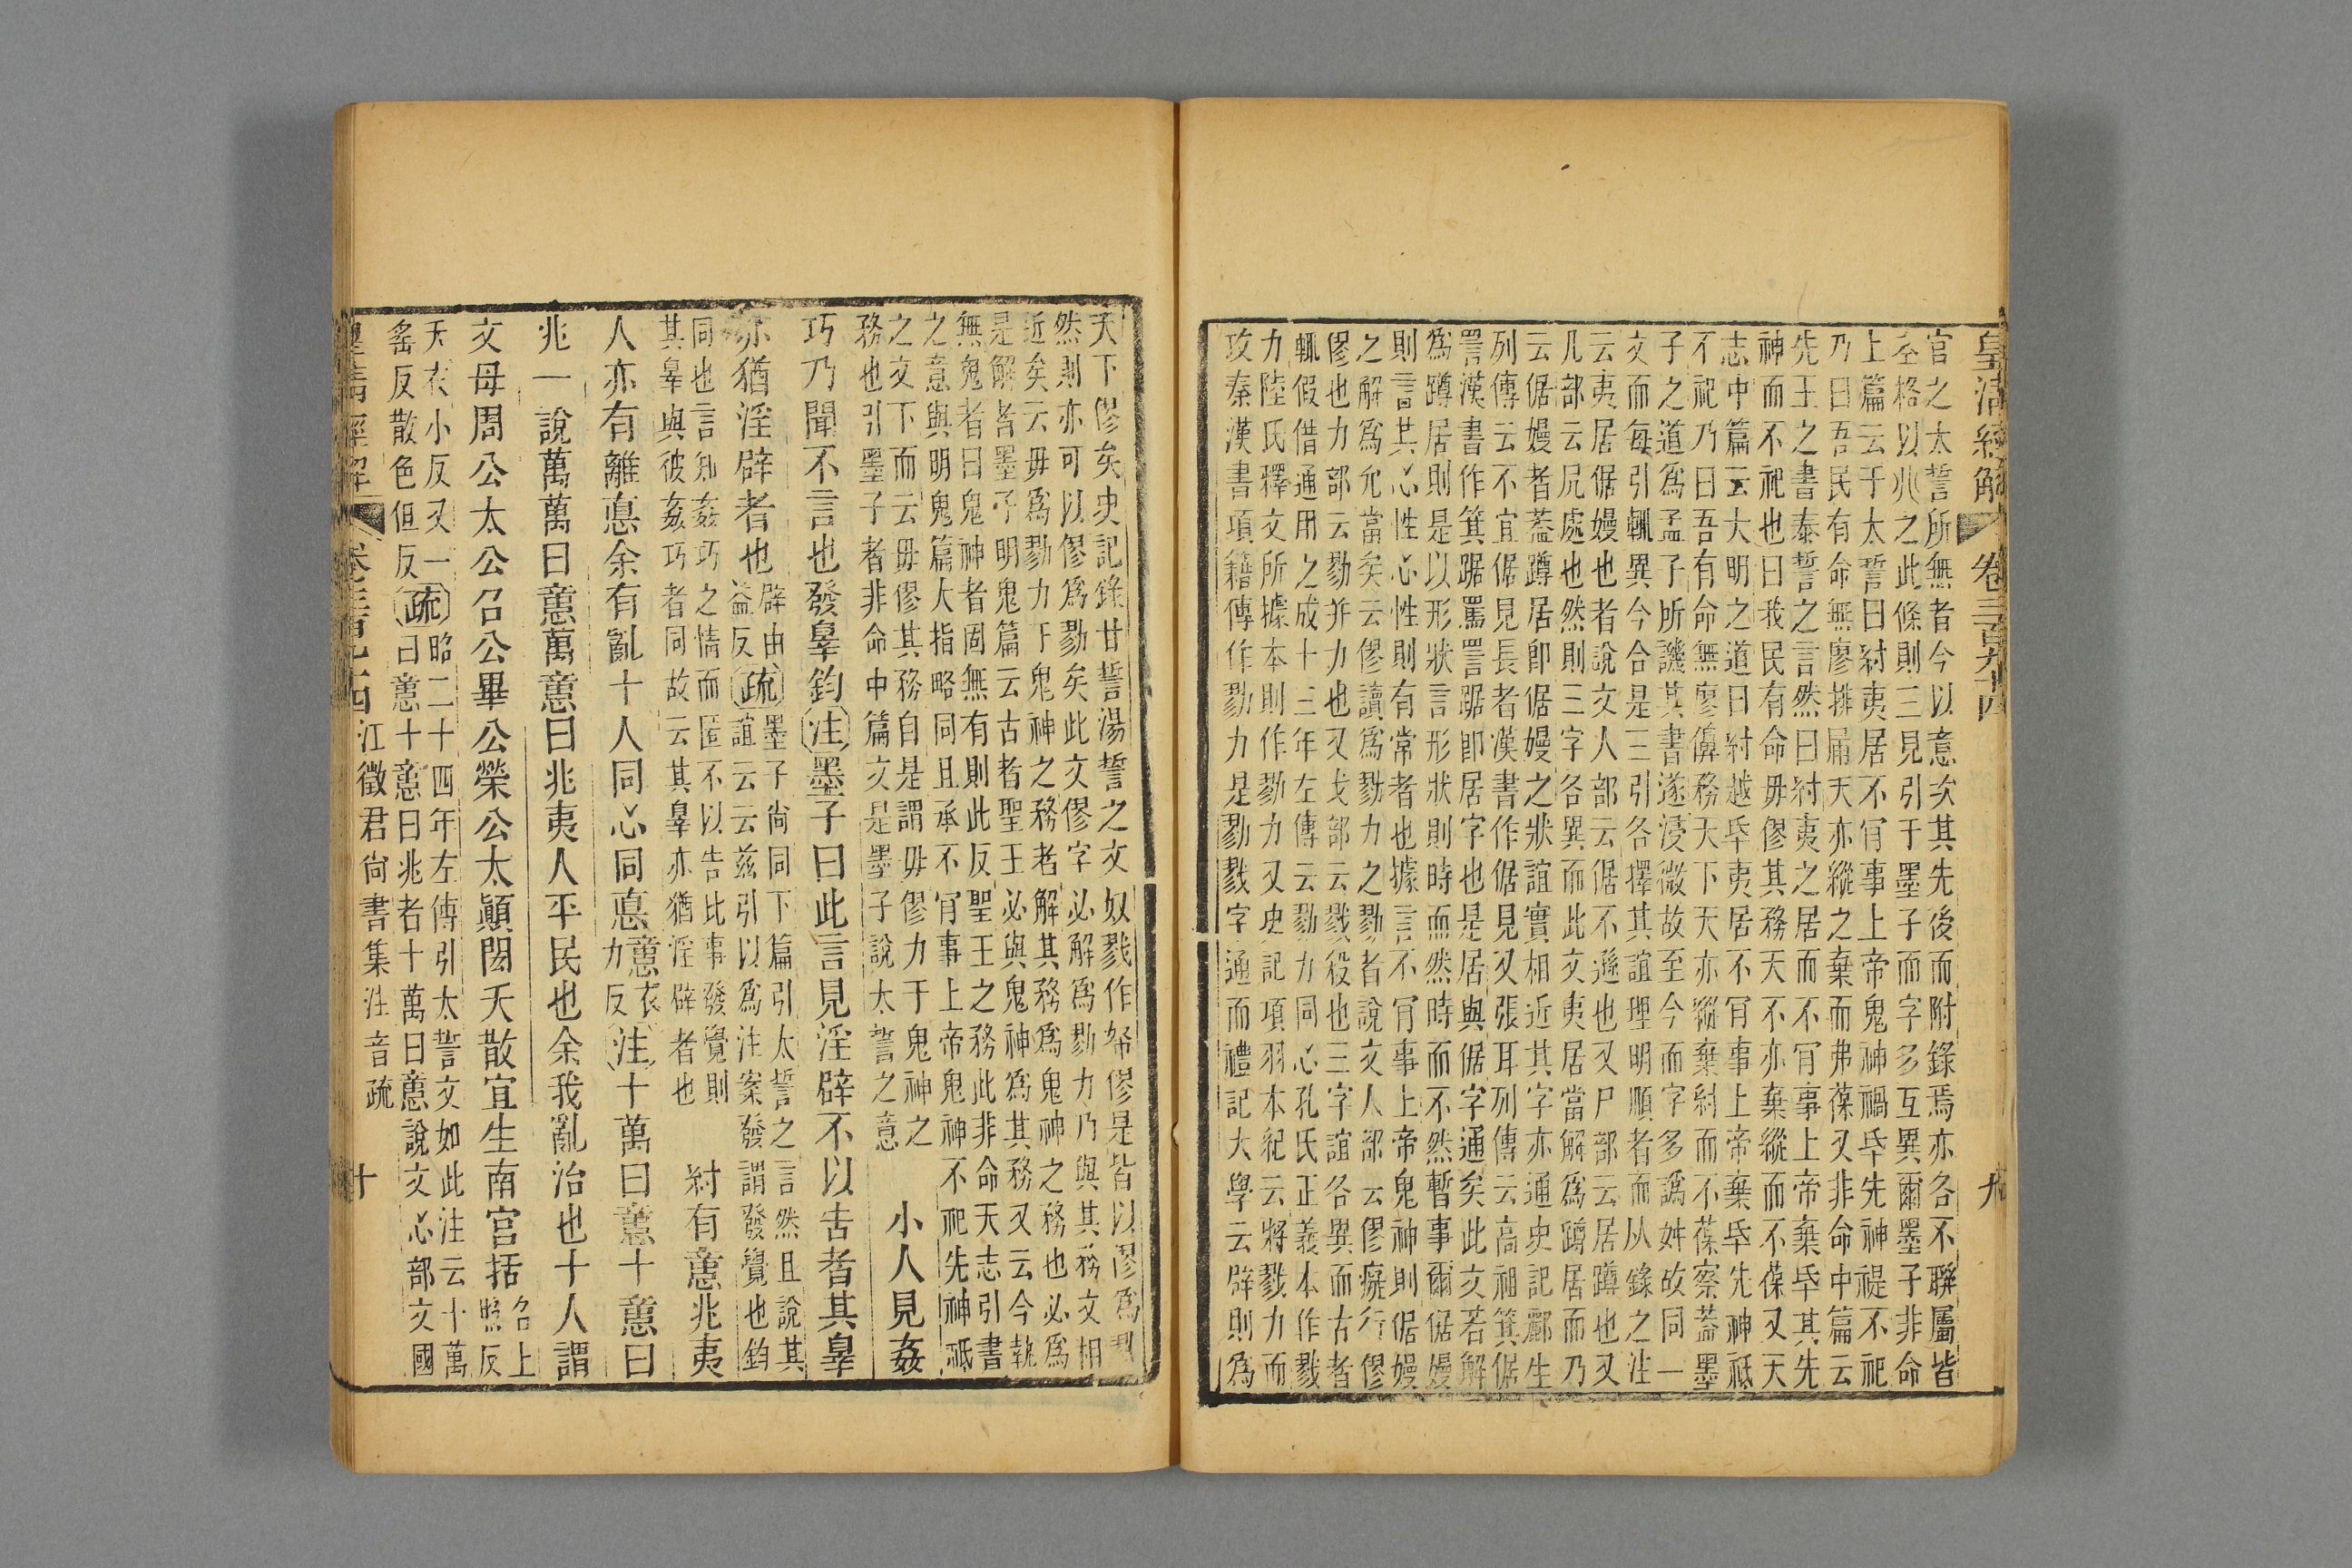 皇清經解 卷三百九十四 九
官之太誓所無者今以意次其先後而附錄焉亦各不聯屬皆
在格以兆之此條則三見引于墨子而字多互異爾墨子非命
上篇云于太誓曰紂夷居不肎事上帝鬼神禍氒先神禔不祀
乃曰吾民有命無廖排扁天亦縱之棄而弗葆又非命中篇云
先王之書泰誓之言然曰紂夷之居而不肎事上帝棄氒其先
神而不祀也曰我民有命毋僇其務天不亦棄縱而不葆又天
志中篇云大明之道曰紂越氒夷居不肎事上帝棄氒先神祗
不祀乃曰吾有命無廖𠌸務天下天亦縱棄紂而不葆察蓋墨
子之道爲孟子所譏其書遂浸微故至今而字多譌舛故同一
文而每引輒異今合是三引各擇其誼理明順者而从錄之注
云夷居倨嫚也者說文人部云倨不遜也又尸部云居蹲也又
几部云凥處也然則三字各異而此文夷居當解爲蹲居而乃
云倨嫚者蓋蹲居卽倨嫚之狀誼實相近其字亦通史記酈生
列傳云不宜倨見長者漢書作倨見又張耳列傳云高祖箕倨
詈漢書作箕踞罵詈踞卽居字也是居與倨字通矣此文若解
爲蹲居則是以形狀言形狀則時而然時而不然暫事爾倨嫚
則言其心性心性則有常者也據言不肎事上帝鬼神則倨嫚
之解爲允當矣云僇讀爲勠力之勠者說文人部云僇癡行僇
僇也力部云勠并力也又戈部云戮殺也三字誼各異而古者
輒假借通用之成十三年左傳云勠力同心孔氏正義本作戮
力陸氏釋文所據本則作勠力又史記項羽本紀云將戮力而
攻秦漢書項籍傳作勠力是勠戮字通而禮記大學云辟則爲
天下僇矣史記錄甘誓湯誓之文奴戮作帑僇是皆以僇爲戮
然則亦可以僇爲勠矣此文僇字必解爲勠力乃與其務文相
近矣云毋爲勠力于鬼神之務者解其務爲鬼神之務也必爲
是解者墨子明鬼篇云古者聖王必與鬼神爲其務又云今執
無鬼者曰鬼神者固無有則此反聖王之務此非命天志引書
之意與明鬼篇大指略同且承不肎事上帝鬼神不祀先神祗
之文下而云毋僇其務自是謂毋僇力于鬼神之
務也引墨子者非命中篇文是墨子說太誓之意
小人見姦
巧乃聞不言也發辠鈞注墨子曰此言見淫辟不以吿者其辠
亦猶淫辟者也辟由
益反疏墨子尙同下篇引太誓之言然且說其
誼云云茲引以爲注案發謂發覺也鈞
同也言知姦巧之情而匿不以告比事發覺則
其辠與彼姦巧者同故云其辠亦猶淫辟者也
紂有𠶷兆夷
人亦有離悳余有亂十人同心同悳𠶷衣
力反注十萬曰𠶷十𠶷曰
兆一說萬萬曰𠶷萬𠶷曰兆夷人平民也余我亂治也十人謂
文母周公太公召公畢公榮公太顚閎夭散宜生南宮括召上
照反
夭衣小反又一
䍃反散色但反疏昭二十四年左傳引太誓文如此注云十萬
曰𠶷十𠶷曰兆者十萬曰𠶷說文心部文國
皇清經解 卷三百九十四 江徵君尙書集注音疏 十